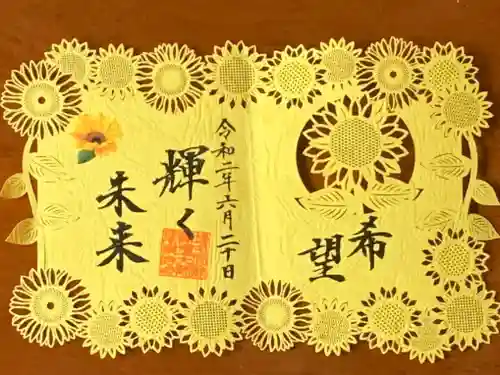 希望
令和二年六月二十日
輝く
未来